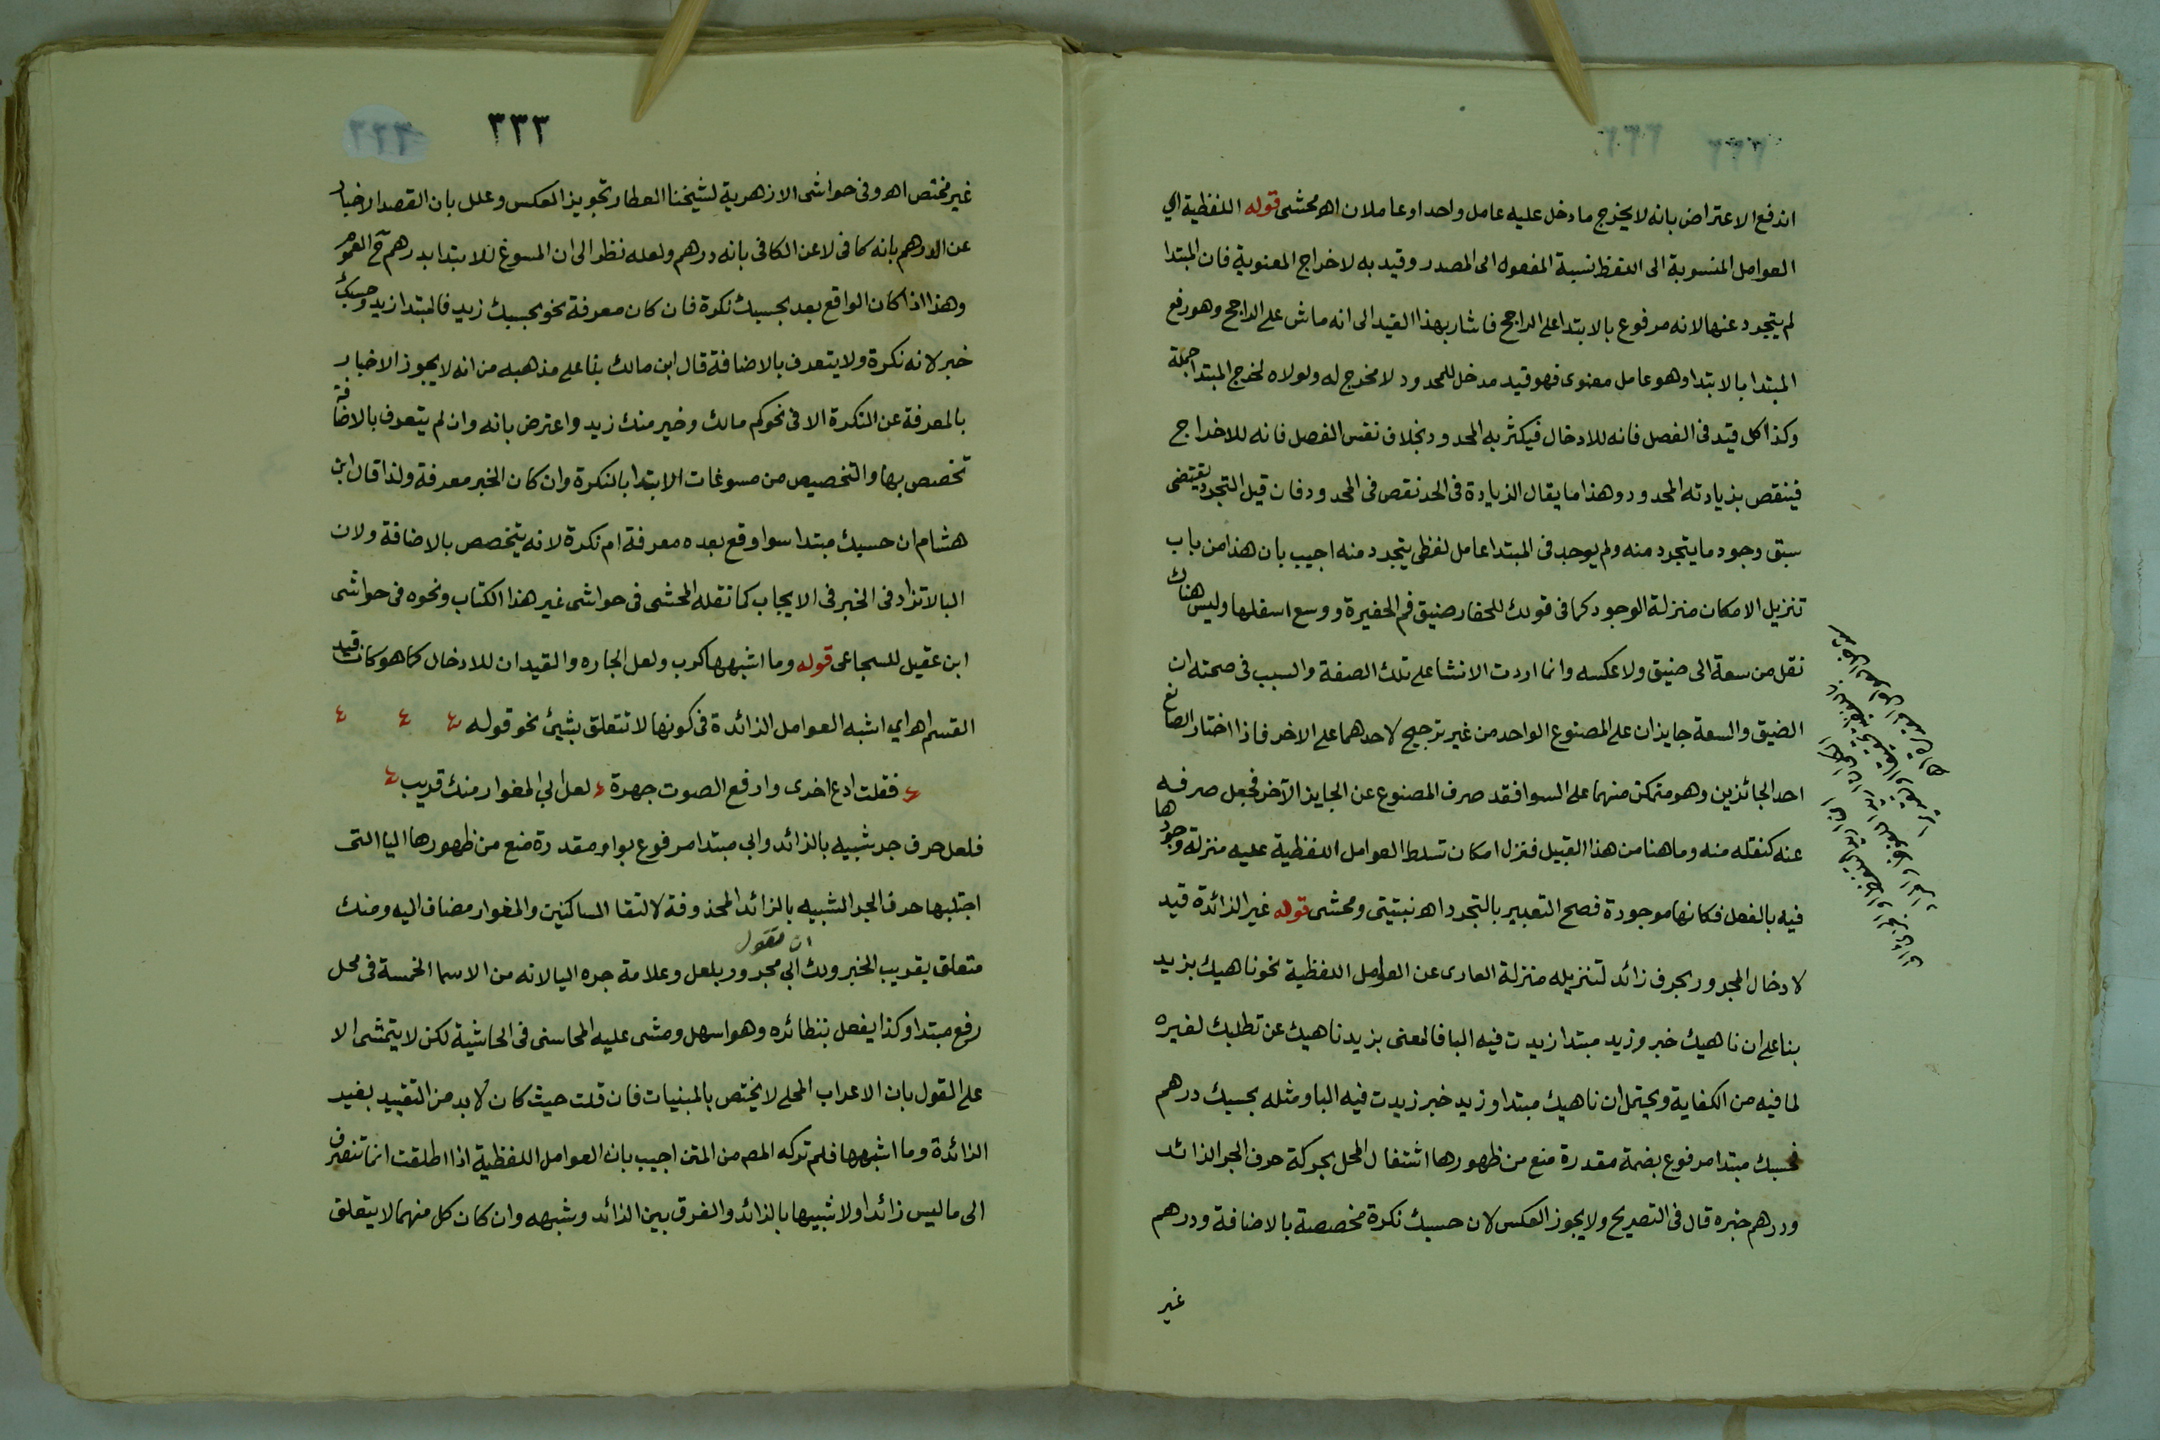 اندفع الاعتراض بانه لا يخرج ما دخل عليه عامل واحد او عاملان اهـ محشى قوله اللفظية اي
العوامل المنسوبة الى اللفظ نسبة المفعول الى المصدر وقيد به لاخراج المعنوية فان المبتدا
لم يتجرد عنها لانه مرفوع بالابتدا على الراجح فاشار بهذا القيد الى انه ماش على الراجح وهو رفع
المبتدا بالابتدا وهو عامل معنوى فهو قيد مدخل للمحدود لا مخرج له ولولاه لخرج المبتدا جملة
وكذا كل قيد فى الفصل فانه للادخال فيكثر به المحدود بخلاف نفس الفصل فانه للاخراج
فينقص بزيادته المحدود وهذا ما يقال الزيادة فى الحد نقص فى المحدود فان قيل التجرد يقتضى
سبق وجود ما يتجرد منه ولم يوجد فى المبتدا عامل لفظى يتجرد منه اجيب بان هذا من باب
تنزيل الامكان منزلة الوجود كما فى قولك للحفار ضيق فم الحفيرة ووسع اسفلها وليس هناك
نقل من سعة الى ضيق ولا عكسه وانما اردت الانشا على تلك الصفة والسبب فى صحته ان
الضيق والسعة جايزان على المصنوع الواحد من غير ترجيح لاحدهما على الاخر فاذا اختار الصانع
احد الجائزين وهو متمكن منهما على السوا فقد صرف المصنوع عن الجايز الآخر فجعل صرفه
عنه كنقله منه وما هنا من هذا القبيل فنزل امكان تسلط العوامل اللفظية عليه منزلة وجودها
فيه بالفعل فكانها موجودة فصح التعبير بالتجرد اهـ نبتيتى ومحشى قوله غير الزائدة قيد
لادخال المجرور بحرف زائد لتنزيله منزلة العارى عن العوامل اللفظية نحو ناهيك بزيد
بنا على ان ناهيك خبر وزيد مبتدا زيدت فيه البا فالمعنى بزيد ناهيك عن تطلبك لغيره
لما فيه من الكفاية ويحتمل ان ناهيك مبتدا وزيد خبر زيدت فيه البا ومثله بحسبك درهم
فحسبك مبتدا مرفوع بضمة مقدرة منع من ظهورها اشتغال المحل بحركة حرف الجر الزائد
ودرهم خبره قال فى التصريح ولا يجوز العكس لان حسبك نكرة مخصصة بالاضافة ودرهم
غير
٣٣٣
غير مختص اهـ وفى حواشى الازهرية لشيخنا العطار تجويز العكس وعلل بان القصد الاخبار
عن الدرهم بانه كافى لا عن الكافى بانه درهم ولعله نظر الى ان المسوغ للابتدا بدرهم ح العموم
وهذا اذا كان الواقع بعد بحسبك نكرة فان كان معرفة نحو بحسبك زيد فالمبتدا زيد وحسبك
خبر لانه نكرة ولا يتعرف بالاضافة قال ابن مالك بنا على مذهبه من انه لا يجوز الاخبار
بالمعرفة عن النكرة الا فى نحو كم مالك وخير منك زيد واعترض بانه وان لم يتعرف بالاضافة
تخصص بها والتخصيص من مسوغات الابتدا بالنكرة وان كان الخبر معرفة ولذا قال ابن
هشام ان حسبك مبتدا سوا وقع بعده معرفة ام نكرة لانه يتخصص بالاضافة ولان
البا لا تزاد فى الخبر فى الايجاب كما نقله المحشى فى حواشى غير هذا الكتاب ونحوه فى حواشى
ابن عقيل للسجاعى قوله وما اشبهها كرب ولعل الجاره والقيدان للادخال كما هو كان قيد
القسم اهـ اي اشبه العوامل الزائدة فى كونها لا تتعلق بشيئ نحو قوله
فقلت ادع اخرى وارفع الصوت جهرة لعل ابي المغوار منك قريب
فلعل حرف جر شبيه بالزائد وابي مبتدا مرفوع بواو مقدرة منع من ظهورها اليا التى
اجتلبها حرف الجر الشبيه بالزائد المحذوفة لالتقا الساكنين والمغوار مضاف اليه ومنك
متعلق بقريب الخبر ولك ان تقول ابي مجرور بلعل وعلامة جره اليا لانه من الاسما الخمسة فى محل
رفع مبتدا وكذا يفعل بنظائره وهو اسهل ومشى عليه المحاسنى فى الحاشية لكن لا يتمشى الا
على القول بان الاعراب المحلى لا يختص بالمبنيات فان قلت حيث كان لا بد من التقييد بغير
الزائدة وما اشبهها فلم تركه المصـ من المتن اجيب بان العوامل اللفظية اذا اطلقت انما تنصرف
الى ما ليس زائدا ولا شبيها بالزائد والفرق بين الزائد وشبهه وان كان كل منهما لا يتعلق